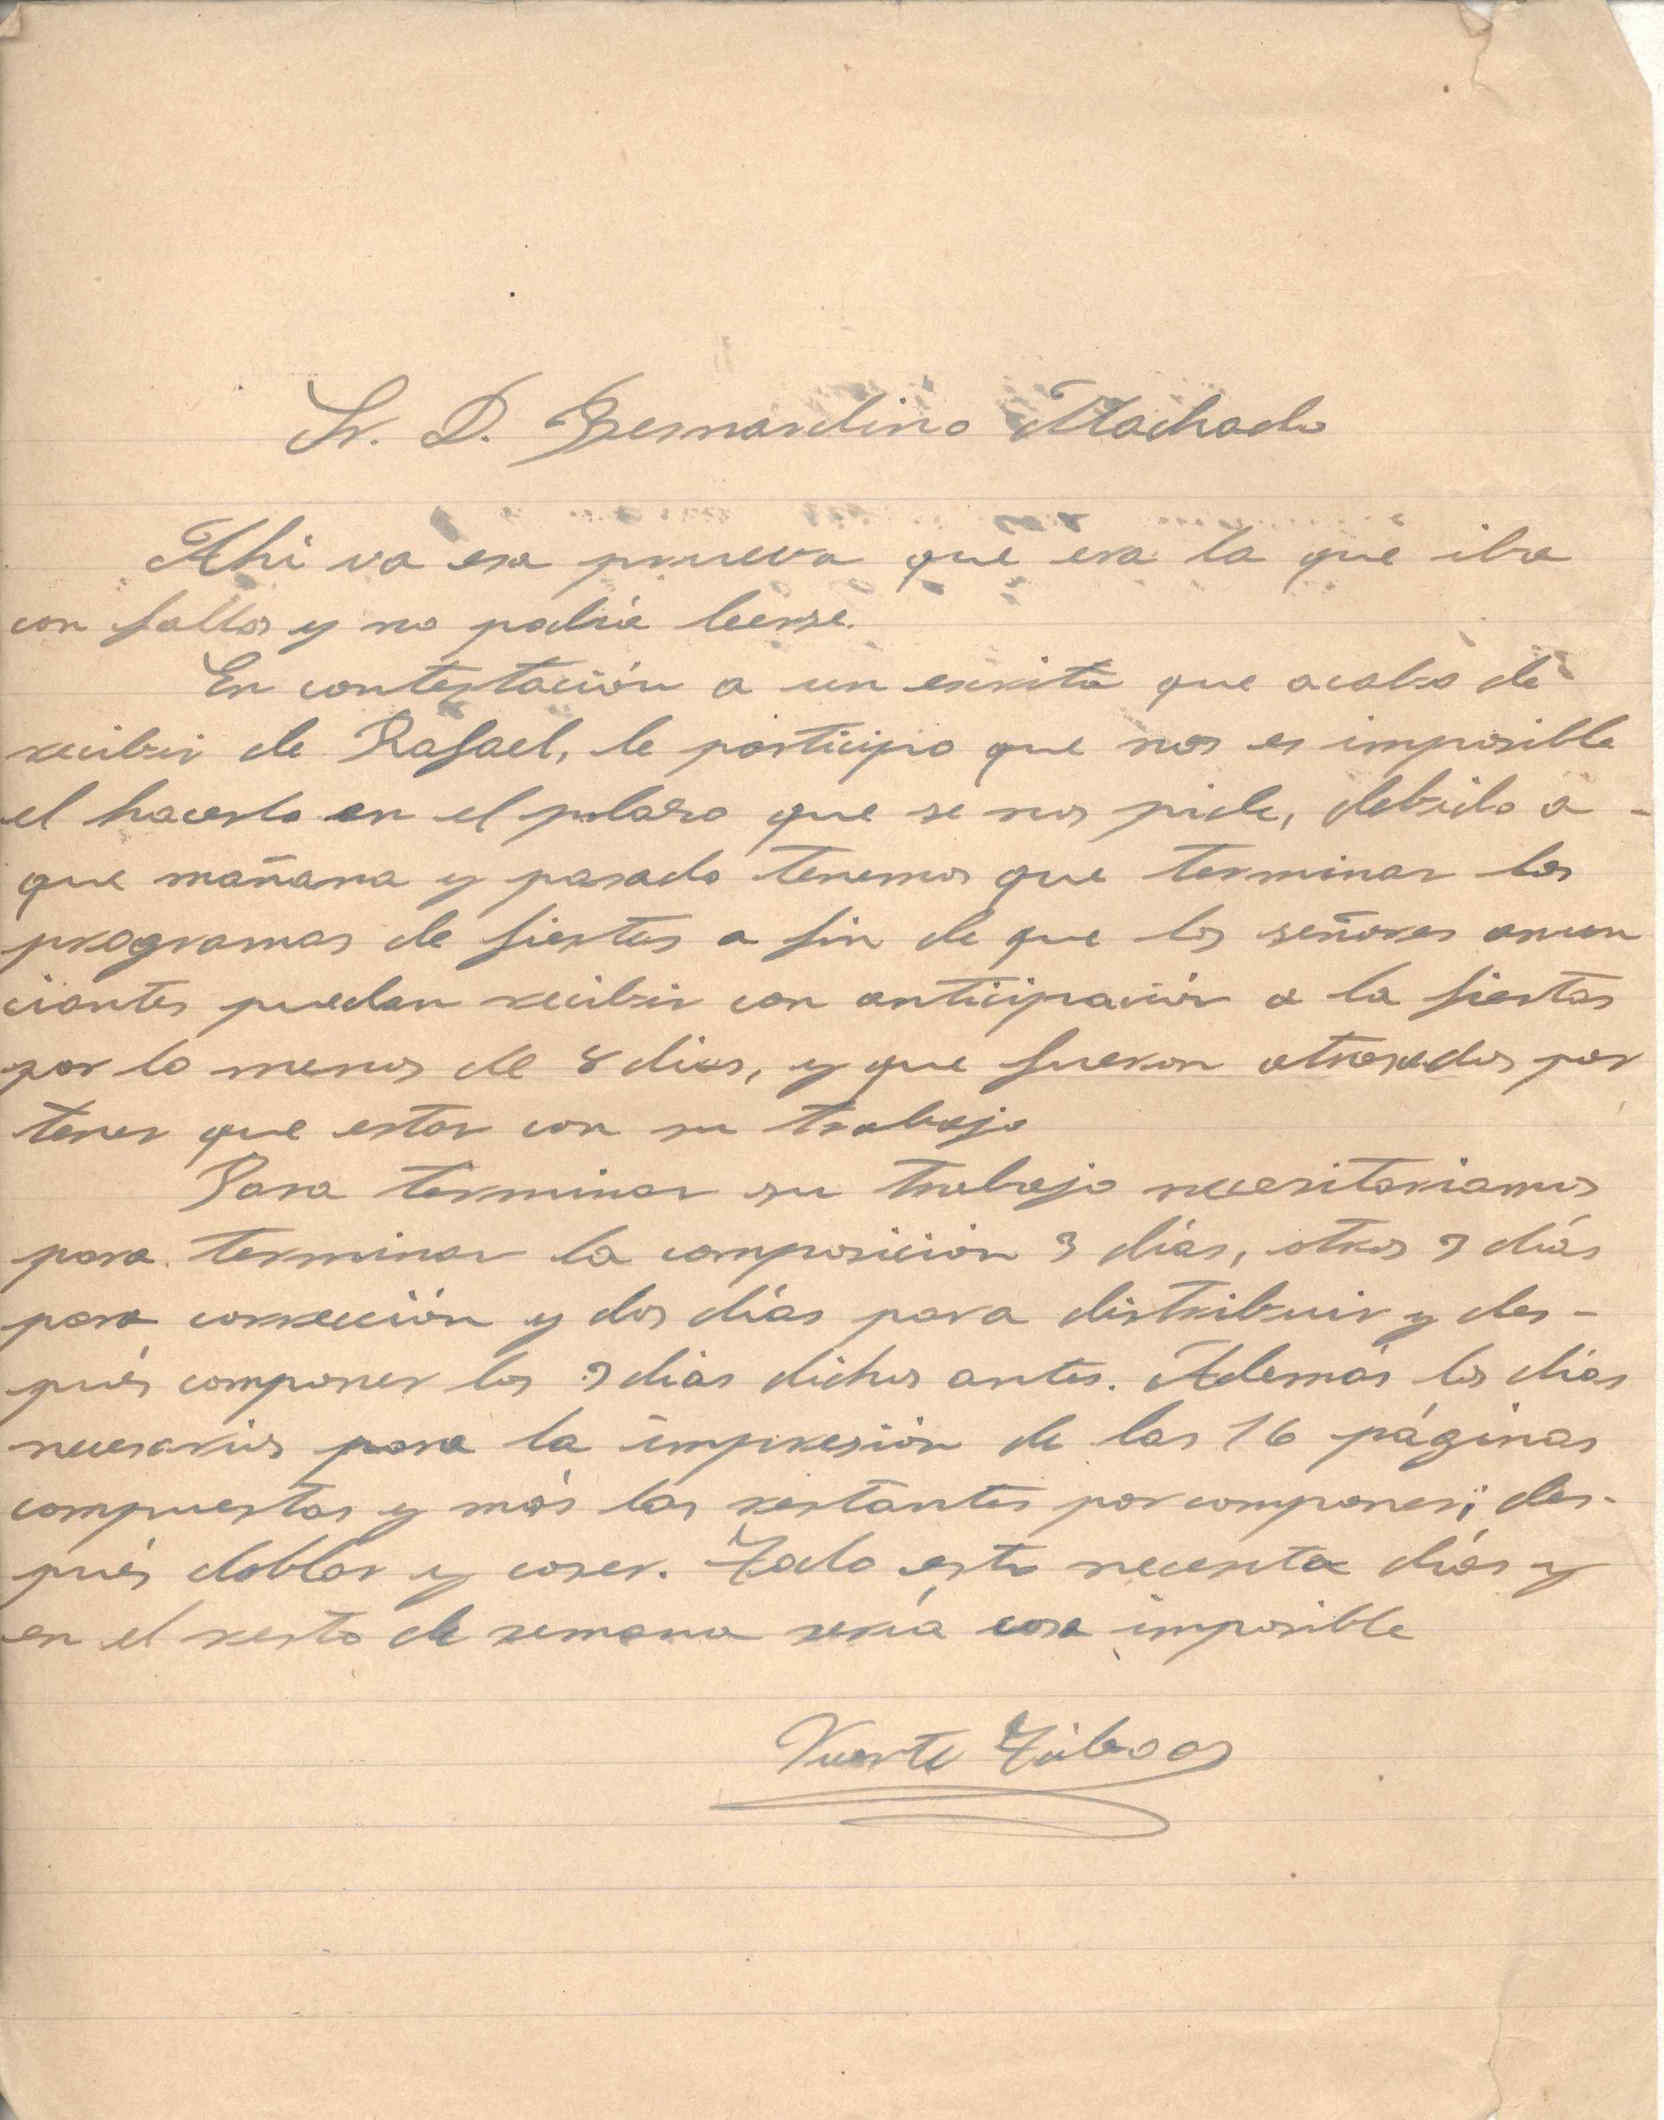 Sr. D. Bernardino Machado
Ahi va esa prueva que era la que iba
con fallos y no podía leerse.
En contestación a un escrito que acabo de
recibir de Rafael, le participo que nos es imposible
el hacerlo en el plazo que se nos pide, debido a -
que mañana y pasado tenemos que terminar los
programas de fiestas a fin de que los señores anun
ciantes puedan recibir con anticipación a la fiestas
por lo menos de 8 dias, y que fueron atrasados por
tener que estar con su trabajo
Para terminar su trabajo necesitariamos
para terminar la composición 3 días, otros 3 días
para corrección y dos días para distribuir y des-
pués componer los 3 dias dichos antes. Además los días
necesarios para la impresión de las 16 páginas
compuestas y más las restantes por componer; des-
pués doblar y coser. Todo esto necesita días y
en el resto de semana sería cosa imposible